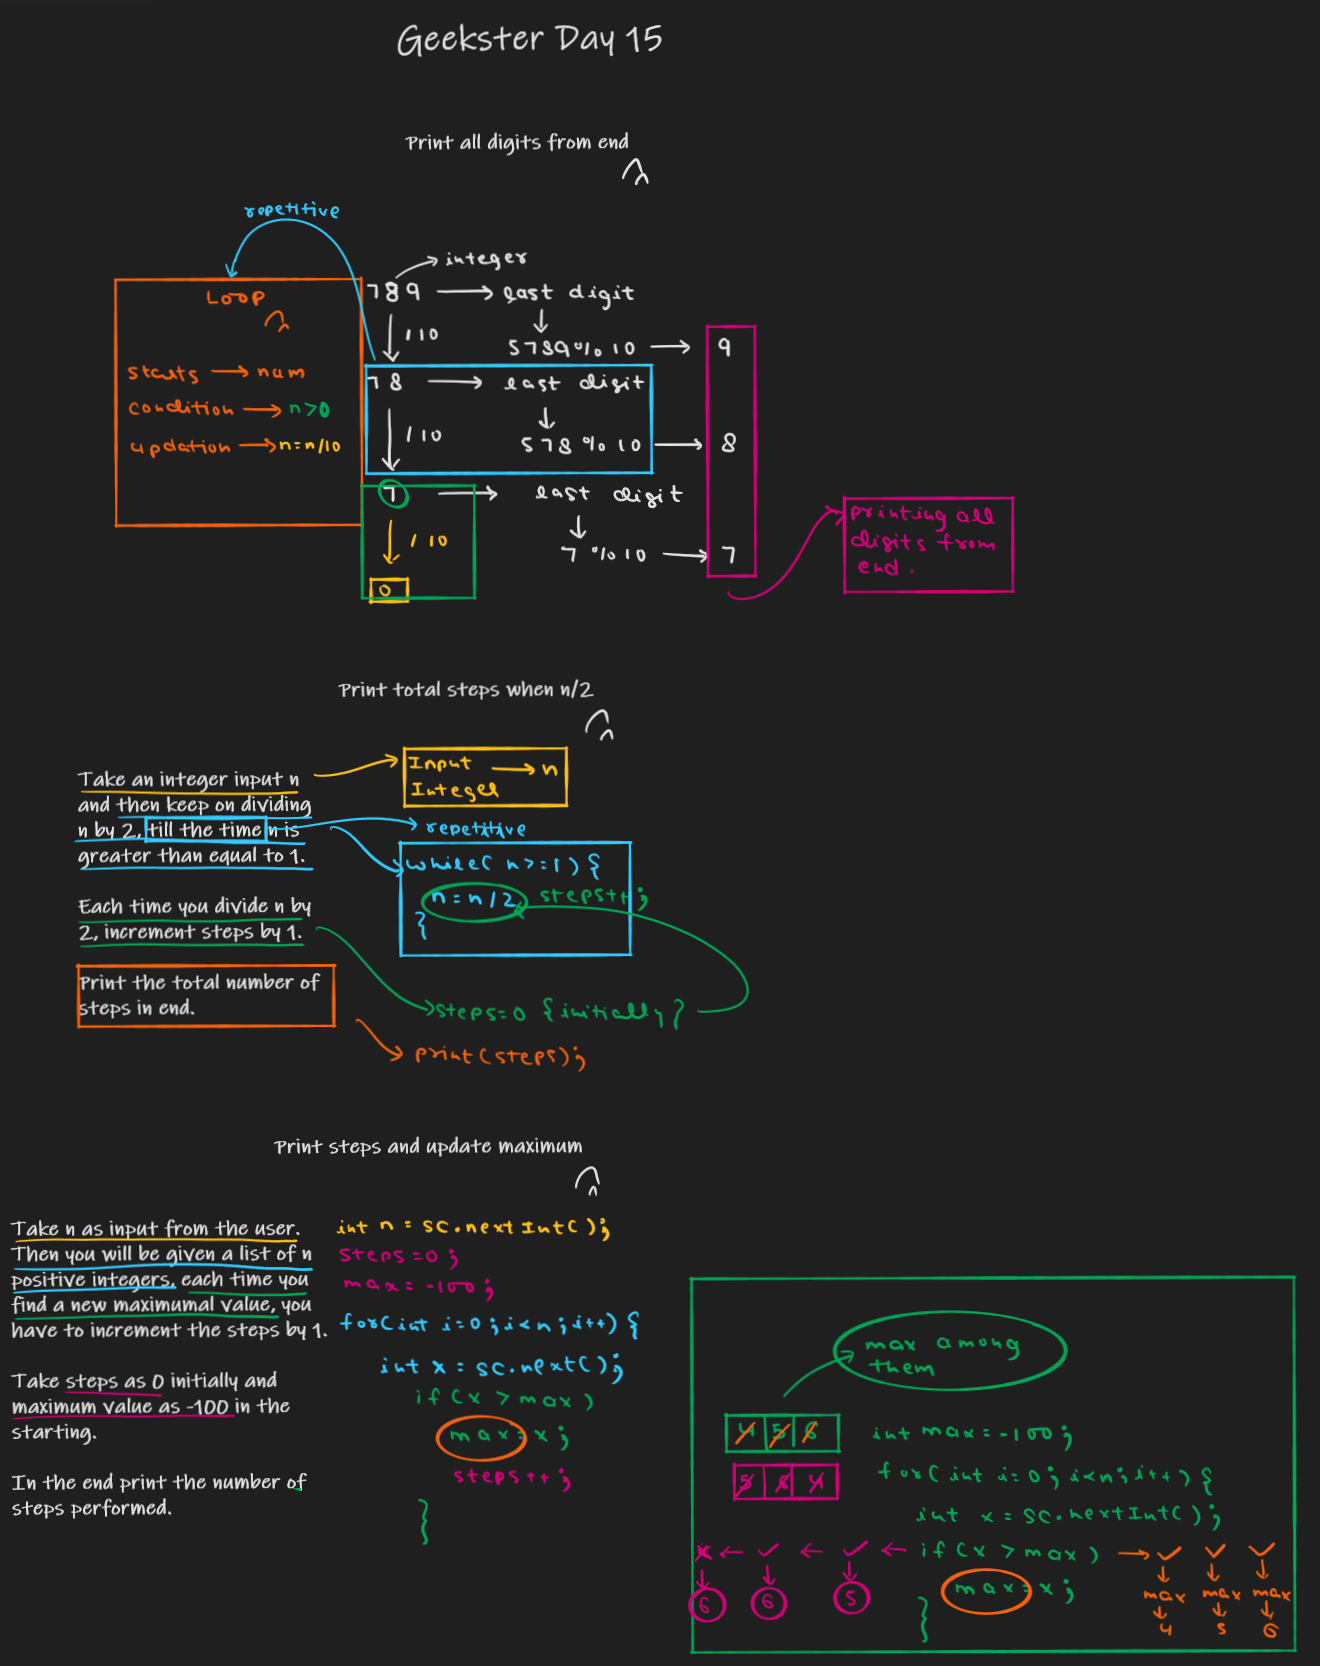 Geekster Day 15
Print all digits from end
repetitive
integer
LOOP
789 last digit
/10
5789%10 9
starts → num
78 → last digit
condition → n>0
/10
updation → n=n/10
578%10 → 8
7 → last digit
/10
7%10 → 7
0
printing all
digits from
end.
Print total steps when n/2
Take an integer input n
and then keep on dividing
n by 2, till the time n is
greater than equal to 1.
Input → n
Integer
repetitive
while( n>=1 ) {
n = n/2, steps++;
}
Each time you divide n by
2, increment steps by 1.
Print the total number of
steps in end.
steps=0 {initially}
print(steps);
Print steps and update maximum
Take n as input from the user.
Then you will be given a list of n
positive integers, each time you
find a new maximumal value, you
have to increment the steps by 1.
Take steps as 0 initially and
maximum value as -100 in the
starting.
In the end print the number of
steps performed.
int n = sc.nextInt();
steps=0;
max=-100;
for(int i=0;i<n;i++) {
int x = sc.next();
if(x > max)
max=x;
steps++;
}
max among
them
4 5 6
5 6 4
int max=-100;
for(int i=0; i<n; i++) {
int x = sc.nextInt();
if(x > max)
max=x;
}
6 6 5
max max max
4 5 6